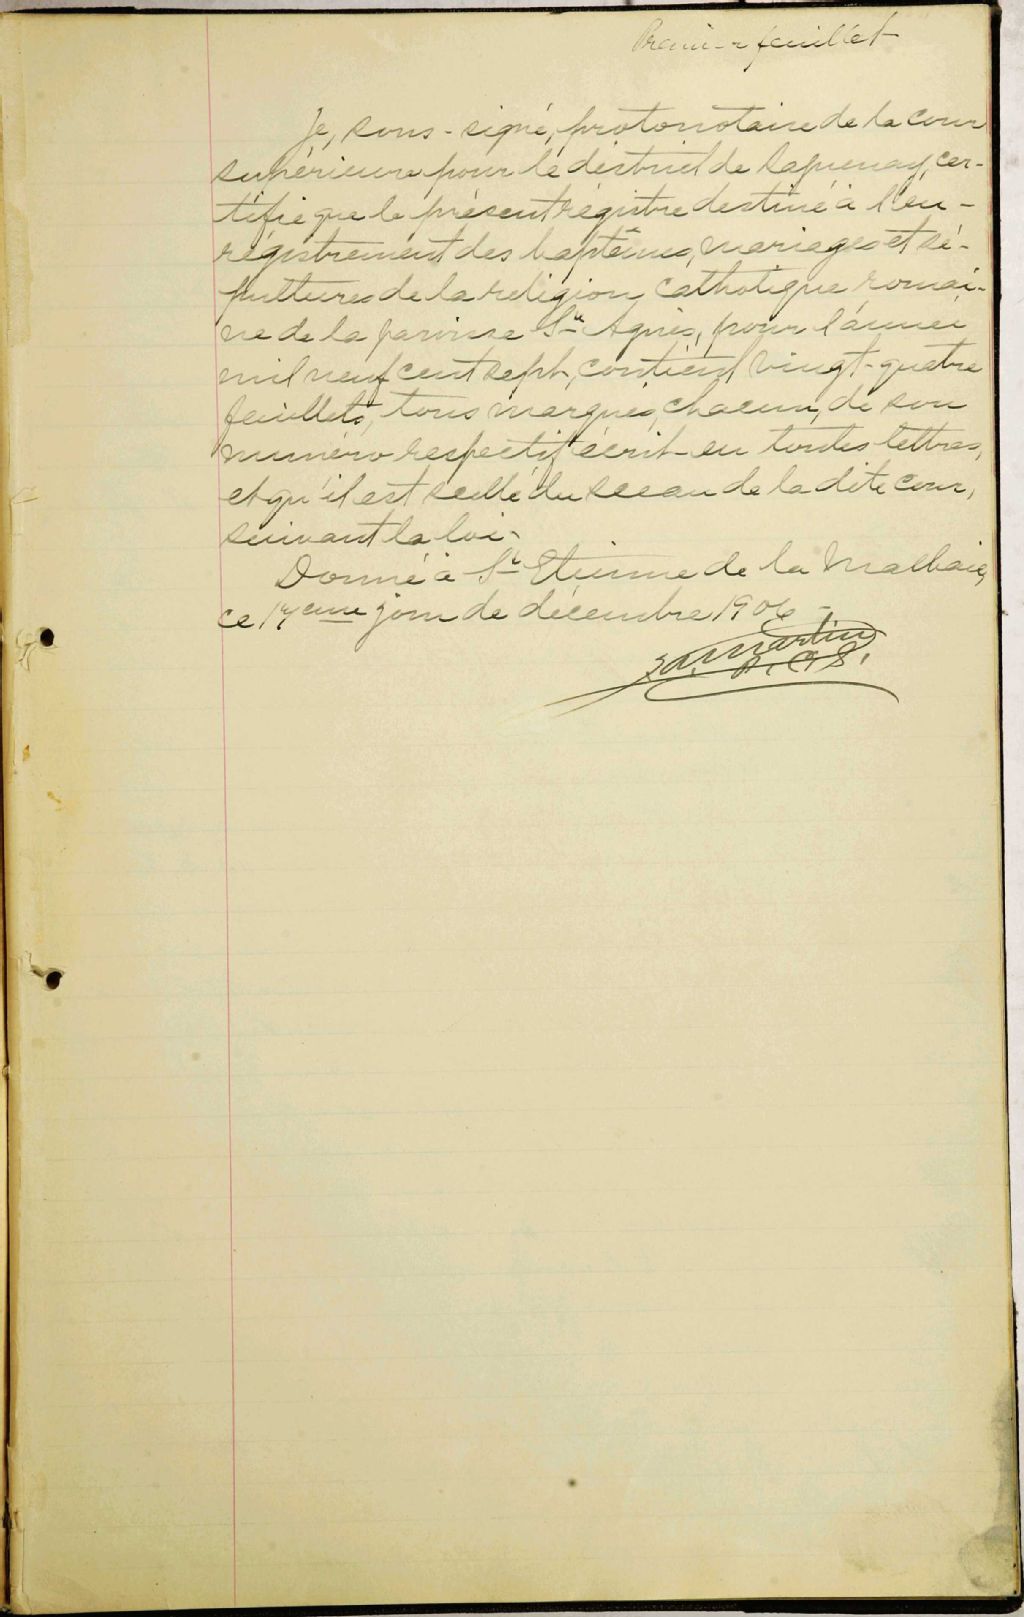 Premier feuillet
Je, sous-signé, protonotaire de la cour
supérieure pour le district de Saguenay, cer-
tifie que le présent régistre destiné à l'en-
régistrement des baptêmes, mariages et sé-
pultures de la religion catholique romai-
ne de la paroisse Ste Agnès, pour l'année
mil neuf cent sept, contient vingt-quatre
feuillets, tous marqués, chacun, de son
numéro respectif écrit en toutes lettres,
et qu'il est scellé du sceau de la dite cour,
suivant la loi.
Donné à St Etienne de la Malbaie,
ce 17eme jour de décembre 1906 -
Martin
P. C. S.